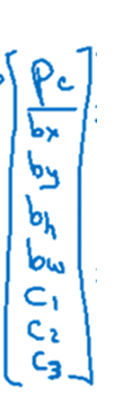 Pc
bx
by
bh
bw
C1
C2
C3